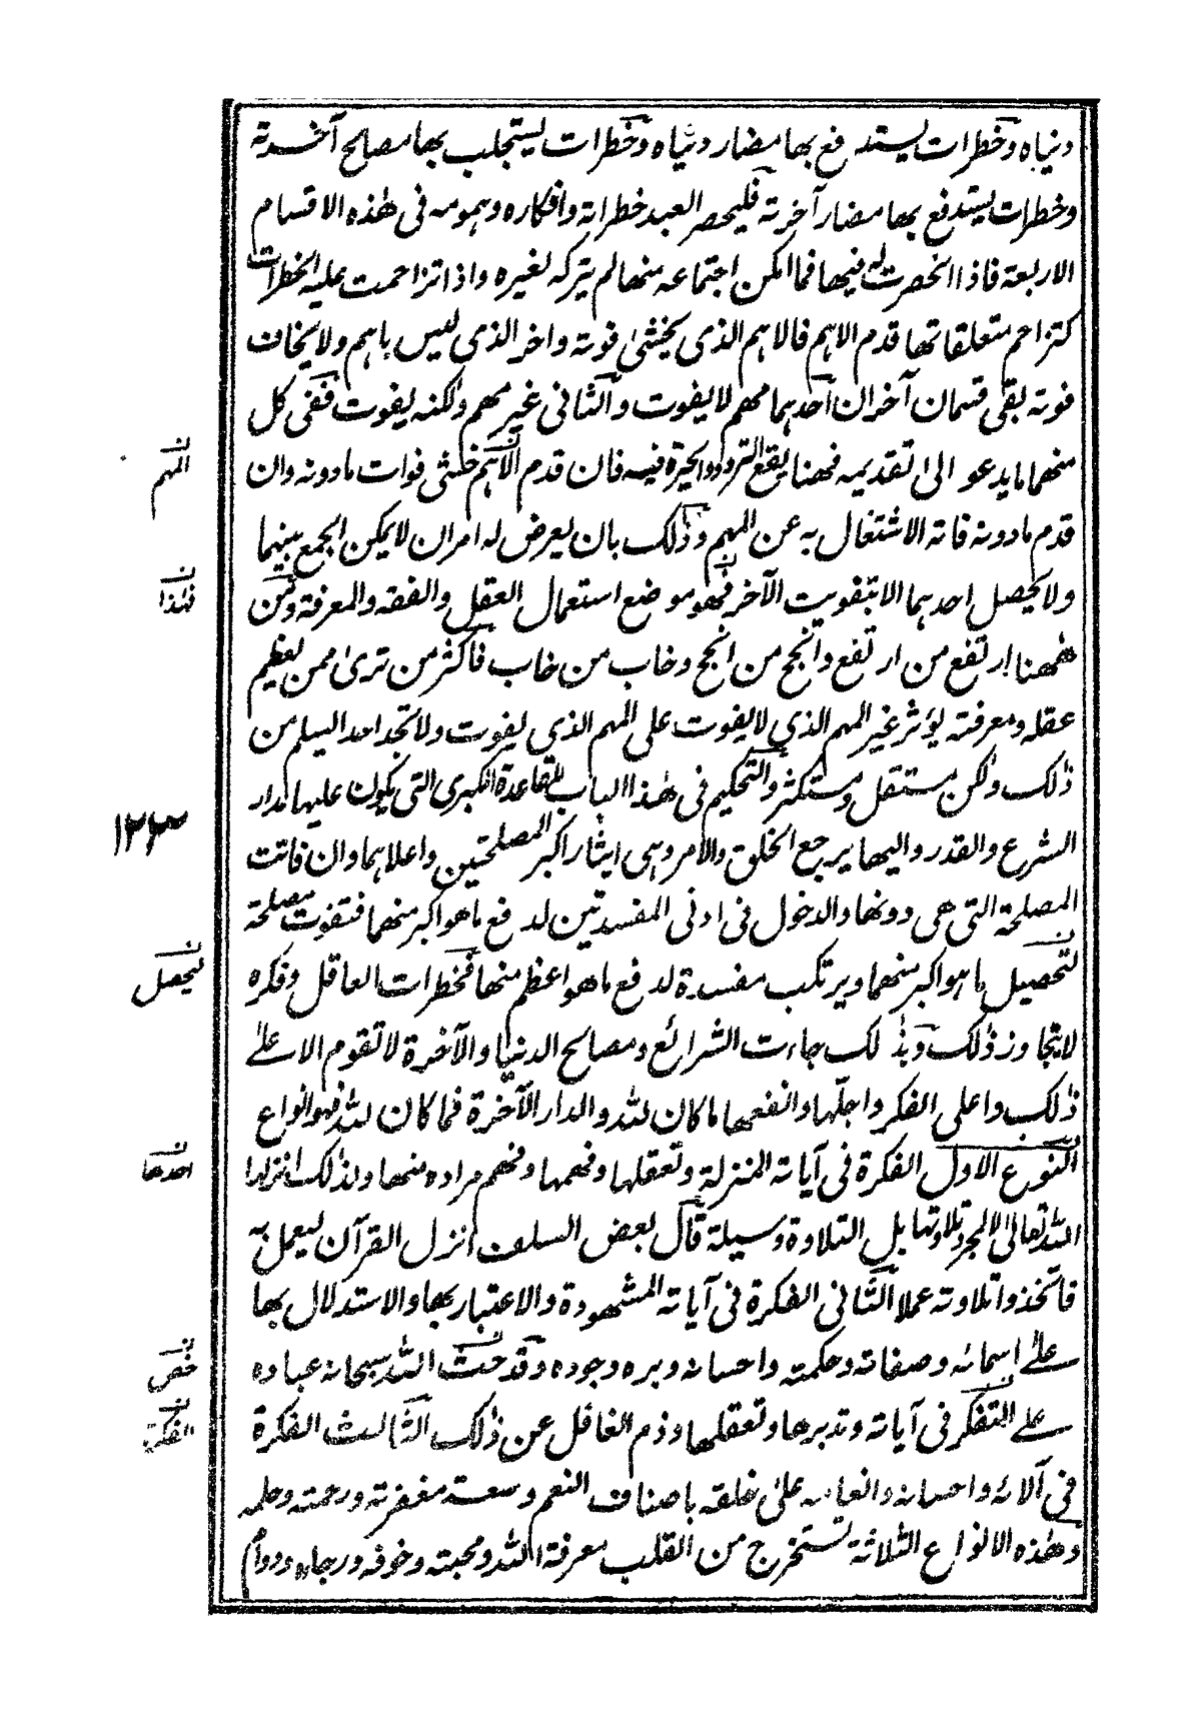 دنياه وخطرات يستدفع بها مضار دنياه وخطرات يستجلب بها مصالح آخرته
وخطرات يستدفع بها مضار آخرته فليحصر العبد خطراته وافكاره وهمومه فى هذه الاقسام
الاربعة فاذا انحصرت له فيها فما امكن اجتماعه منها لم يتركه لغيره واذا تزاحمت عليه الخطرات
كتزاحم متعلقاتها قدم الاهم فالاهم الذى يخشى فوته واخر الذى ليس باهم ولا يخاف
فوته بقى قسمان آخران احدهما مهم لا يفوت والثانى غير مهم ولكنه يفوت ففى كل
منهما ما يدعو الى تقديمه فهنا يقع التردد والحيرة فيه فان قدم الاهم خشى فوات ما دونه وان
المهم
قدم ما دونه فاته الاشتغال به عن المهم وذلك بان يعرض له امران لا يمكن الجمع بينهما
ولا يحصل احدهما الا بتفويت الآخر فهو موضع استعمال العقل والفقه والمعرفة ومن
فهذا
ههنا ارتفع من ارتفع وانجح من انجح وخاب من خاب فاكثر من ترى ممن يعظم
عقله ومعرفته يؤثر غير المهم الذى لا يفوت على المهم الذى يفوت ولا تجد احدا يسلم من
ذلك ولكن مستقل ومستكثر والتحكيم فى هذا الباب للقاعدة الكبرى التى يكون عليها مدار
١٢٣
الشرع والقدر واليها يرجع الخلق والامر وهى ايثار اكبر المصلحتين واعلاهما وان فاتت
المصلحة التى هى دونها والدخول فى ادنى المفسدتين لدفع ما هو اكبر منها فتفوت مصلحة
لتحصيل ما هو اكبر منها ويرتكب مفسدة لدفع ما هو اعظم منها فخطرات العاقل وفكره
ليحصل
لا يتجاوز ذلك وبذلك جاءت الشرائع ومصالح الدنيا والآخرة لا تقوم الا على
ذلك واعلى الفكر واجلّها وانفعها ما كان لله والدار الآخرة فما كان لله فهو انواع
النوع الاول الفكرة فى آياته المنزلة وتعقلها وفهمها وفهم مراده منها ولذلك انزلها
احدها
الله تعالى لا لمجرد تلاوتها بل التلاوة وسيلة قال بعض السلف انزل القرآن ليعمل به
فاتخذوا تلاوته عملا الثانى الفكرة فى آياته المشهودة والاعتبار بها والاستدلال بها
على اسمائه وصفاته وحكمته واحسانه وبره وجوده وقد حث الله سبحانه عباده
حض
على التفكر فى آياته وتدبرها وتعقلها وذم الغافل عن ذلك الثالث الفكرة
الفكرة
فى آلائه واحسانه وانعامه على خلقه باصناف النعم وسعة مغفرته ورحمته وحلمه
وهذه الانواع الثلاثة تستخرج من القلب معرفة الله ومحبته وخوفه ورجاءه ودوام